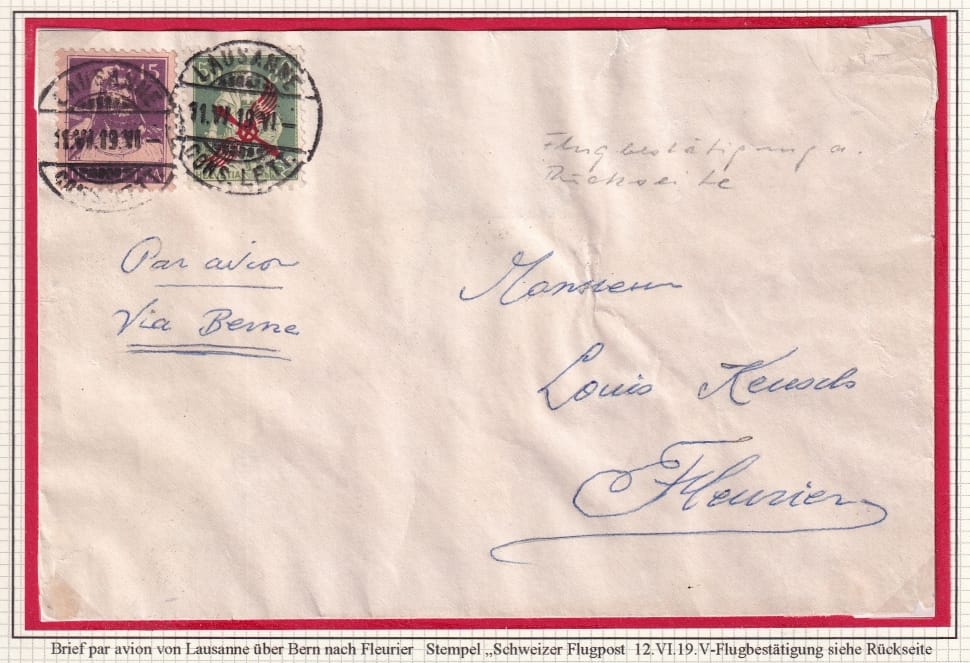 15
LAUSANNE
11.VI.19.VI-
LAUSANNE
11.VI.19.VI-
CONS. LETT.
Flugbestätigung a.
Rückseite
Par avion
Via Berne
Monsieur
Louis
Fleurier
Brief par avion von Lausanne über Bern nach Fleurier Stempel „Schweizer Flugpost 12.VI.19.V-Flugbestätigung siehe Rückseite